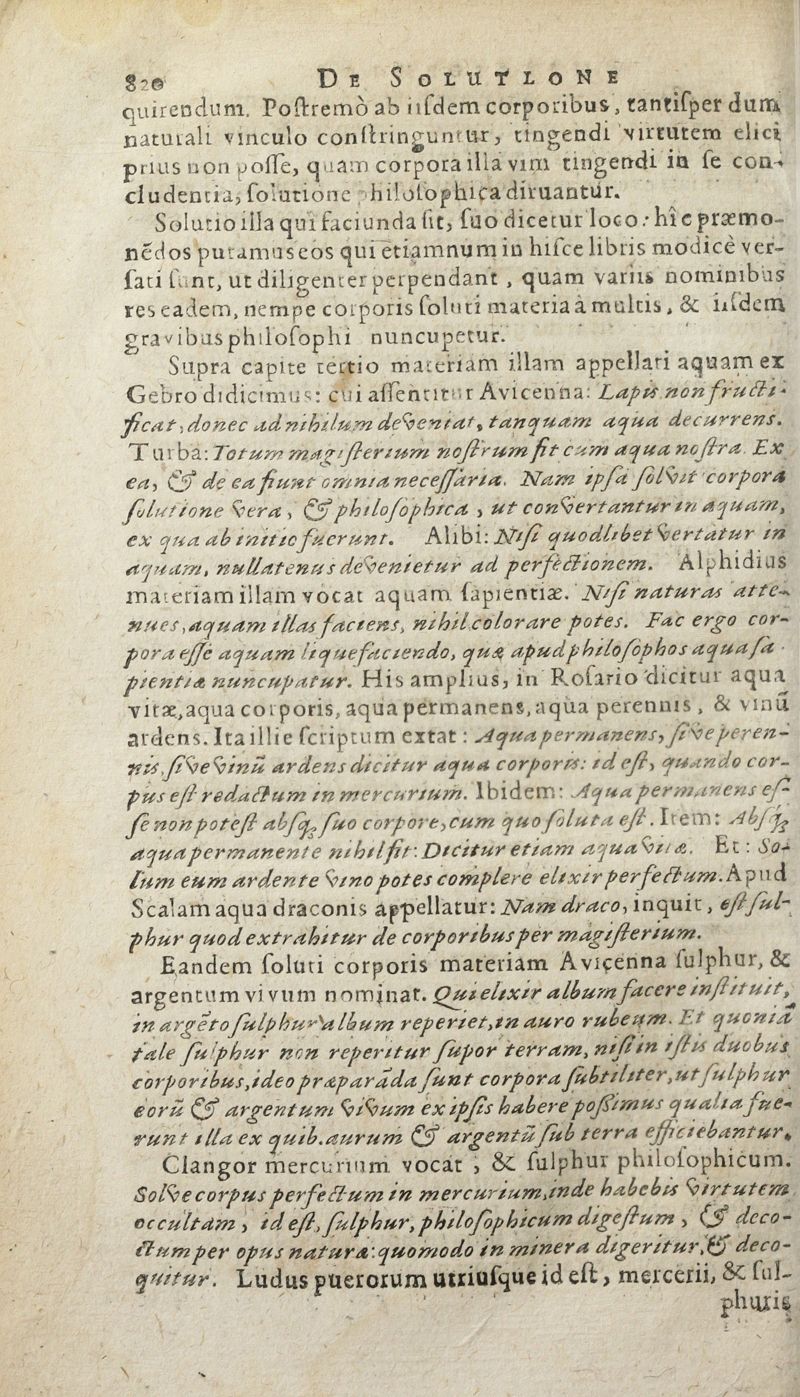 820 DE SOLUTIONE
quirendum. Poſtremò ab iiſdem corporibus, tantiſper dum
naturali vinculo conſtringuntur, tingendi virtutem elici
prius non poſſe, quam corpora illa vim tingendi in ſe con-
cludentia, ſolutione philoſophica diruantur.
Solutio illa qui faciunda ſit, ſuo dicetur loco: hîc præmo-
nẽdos putamus eos qui etiamnum in hiſce libris modicè ver-
ſati ſunt, ut diligenter perpendant, quam variis nominibus
res eadem, nempe corporis ſoluti materia à multis, & iiſdem
gravibus philoſophi nuncupetur.
Supra capite tertio materiam illam appellari aquam ex
Gebro didicimus: cui aſſentitur Avicenna: Lapis non fructi-
ficat, donec ad nihilum deveniat, tanquam aqua decurrens.
Turba: Totum magiſterium noſtrum fit cum aqua noſtra. Ex
ea, & de ea fiunt omnia neceſſaria. Nam ipſa ſolvit corpora
ſolutione vera, & philoſophica, ut convertantur in aquam,
ex qua ab initio fuerunt. Alibi: Niſi quodlibet vertatur in
aquam, nullatenus devenietur ad perfectionem. Alphidius
materiam illam vocat aquam ſapientiæ. Niſi naturas atte-
nues, aquam illas faciens, nihil colorare potes. Fac ergo cor-
pora eſſe aquam liquefaciendo, quæ apud philoſophos aqua ſa
pientiæ nuncupatur. His amplius, in Roſario dicitur aqua
vitæ, aqua corporis, aqua permanens, aqua perennis, & vinũ
ardens. Ita illic ſcriptum extat: Aqua permanens, ſive peren-
nis, ſive vinũ ardens dicitur aqua corporis: id eſt, quando cor-
pus eſt redactum in mercurium. Ibidem: Aqua permanens eſ-
ſe non poteſt abſq; ſuo corpore, cum quo ſoluta eſt. Item: Abſq;
aqua permanente nihil fit: Dicitur etiam aqua vitæ. Et: So-
lum eum ardente vino potes complere elixir perfectum. Apud
Scalam aqua draconis appellatur: Nam draco, inquit, eſt ſul-
phur quod extrahitur de corporibus per magiſterium.
Eandem ſoluti corporis materiam Avicenna ſulphur, &
argentum vivum nominat. Qui elixir album facere inſtituit,
in argẽto ſulphur album reperiet, in auro rubeum. Et quoniã
tale ſulphur non reperitur ſupor terram, niſi in iſtis duobus
corporibus, ideo præparãda ſunt corpora ſubtiliter, ut ſulphur
eorũ & argentum vivum ex ipſis habere poſſimus qualia fue-
runt illa ex quib. aurum & argentũ ſub terra efficiebantur.
Clangor mercurium vocat, & ſulphur philoſophicum.
Solve corpus perfectum in mercurium, inde habebis virtutem
occultam, id eſt, ſulphur, philoſophicum digeſtum, & deco-
ctum per opus naturæ: quomodo in minera digeritur, & deco-
quitur. Ludus puerorum utriuſque id eſt, mercerii, & ſul-
phuris